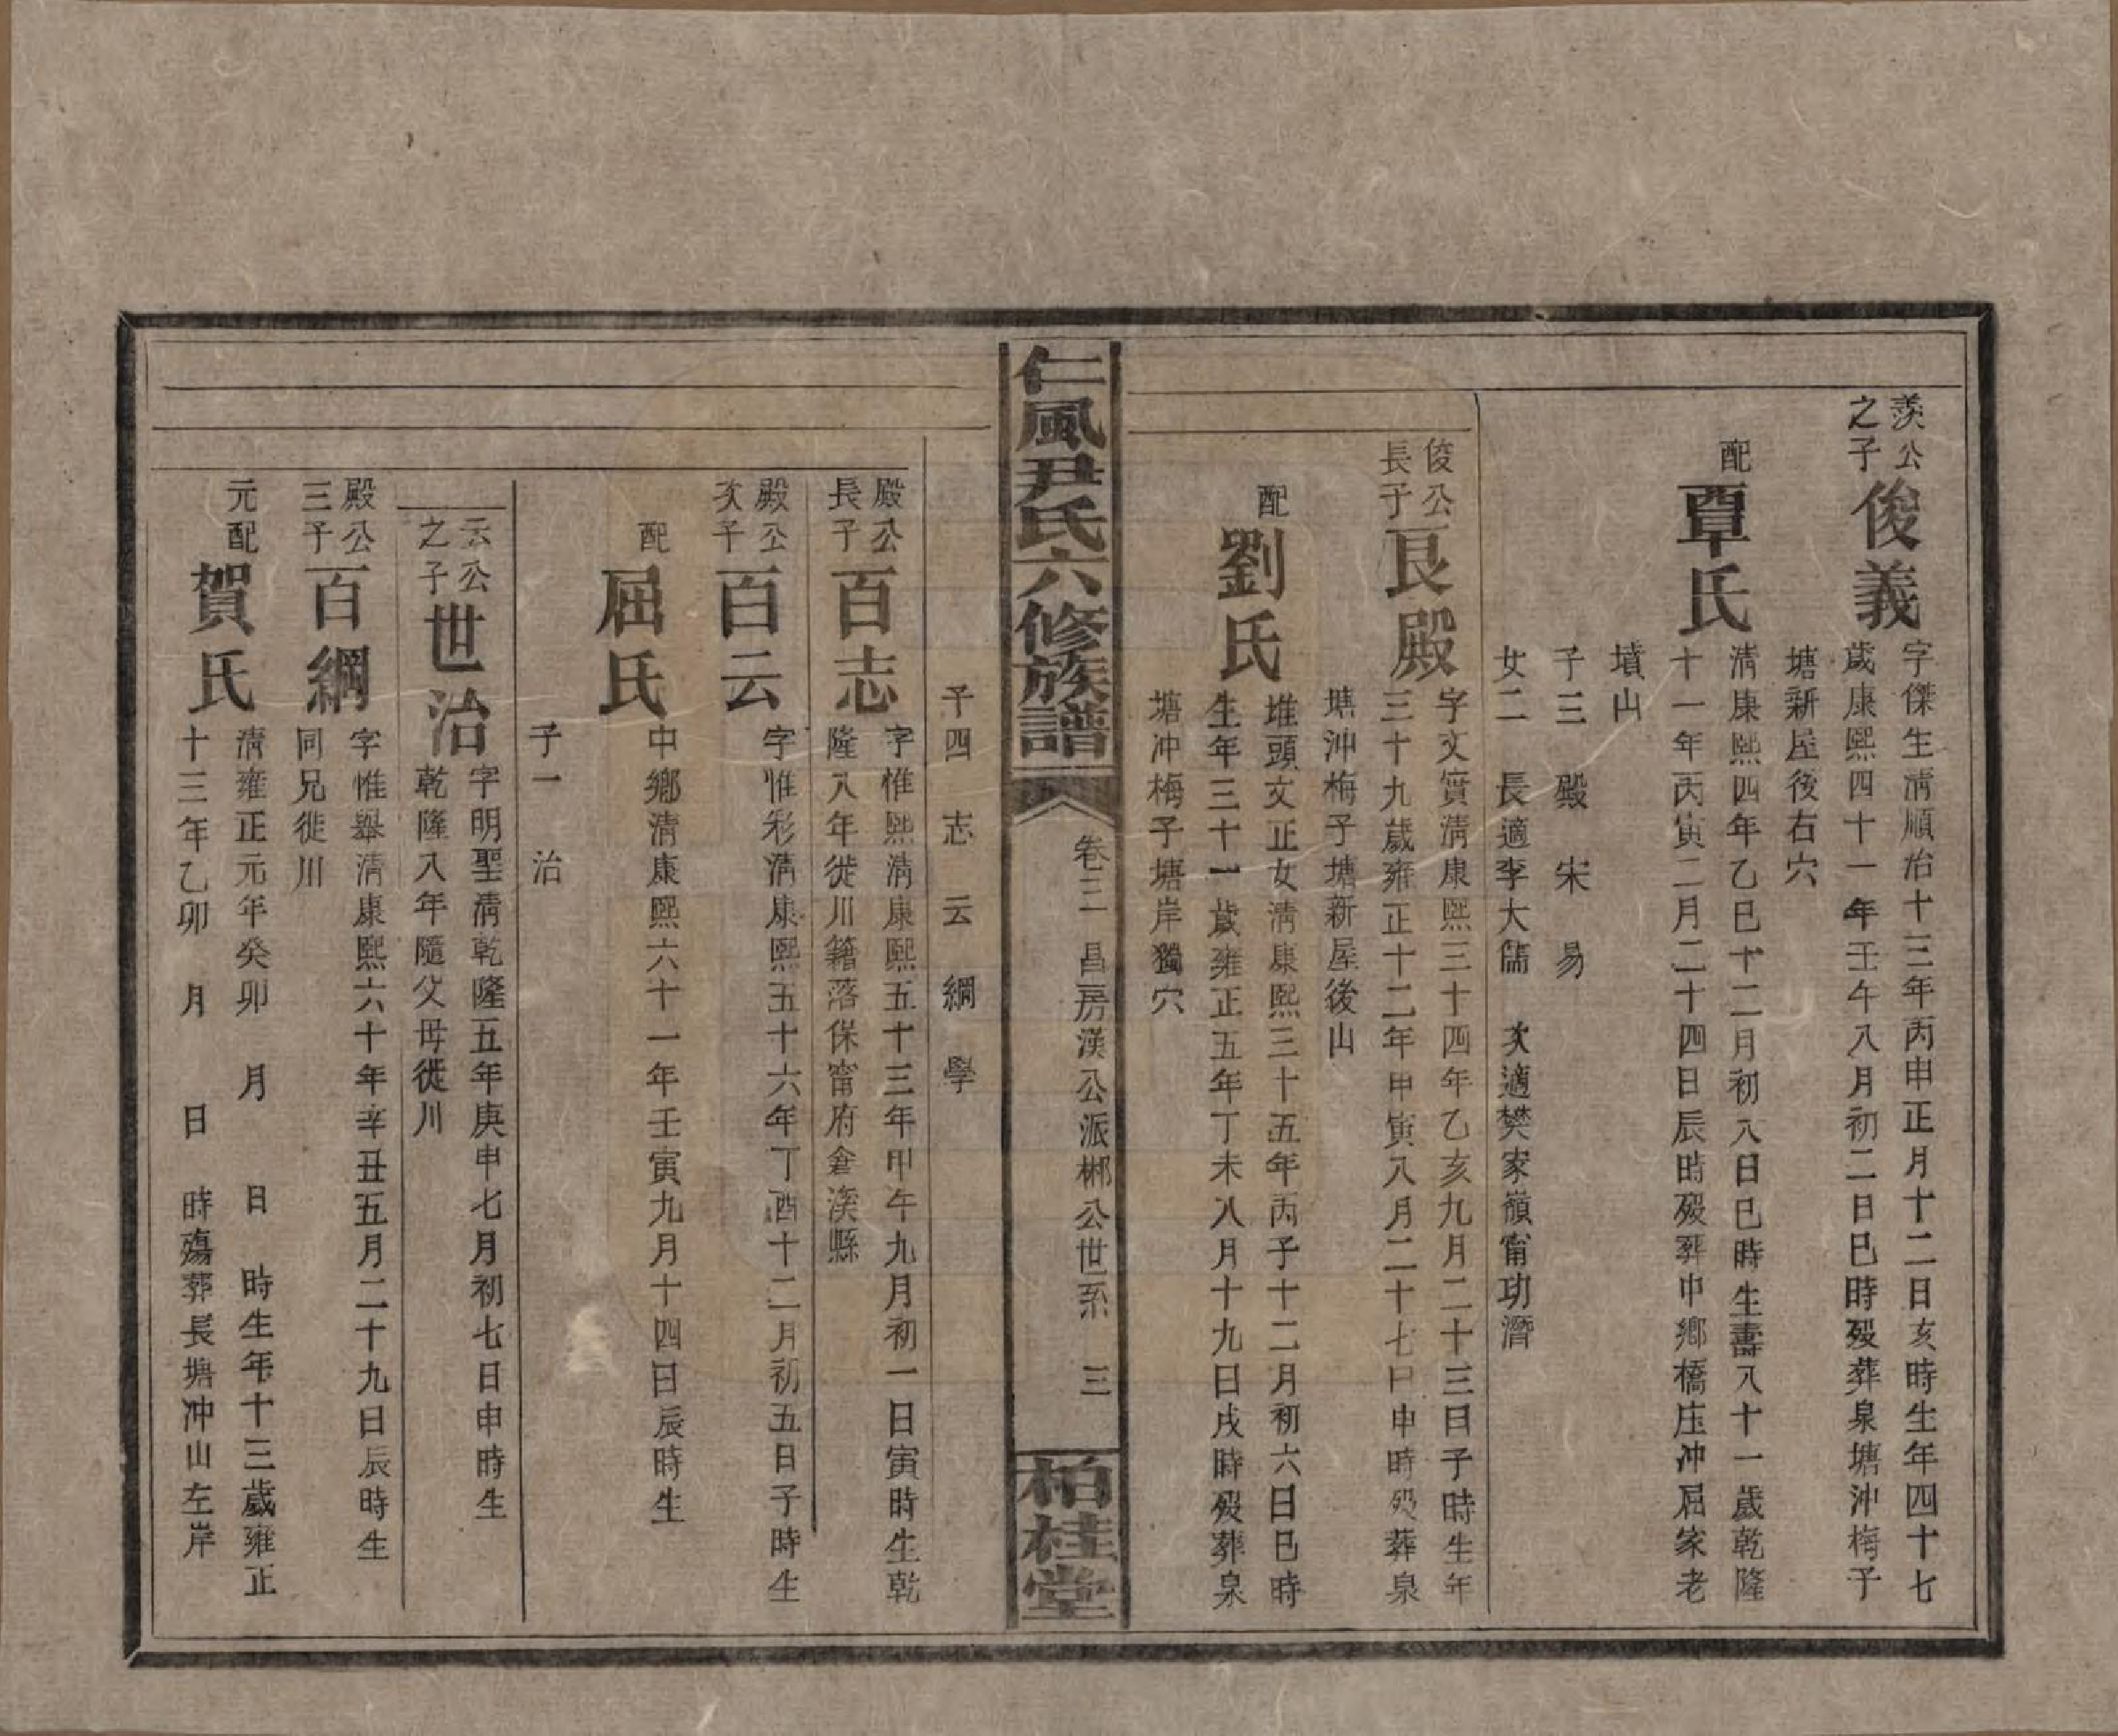 羨公
之子
俊義
字傑生清順治十三年丙申正月十二日亥時生年四十七
歲康熙四十一年壬午八月初二日巳時歿葬泉塘沖梅子
塘新屋後右穴
配
覃氏
清康熙四年乙巳十二月初八日巳時生壽八十一歲乾隆
十一年丙寅二月二十四日辰時歿葬中鄉橋庄冲屈家老
墳山
子三 殿 宋 易
女二 長適李大儒 次適樊家嶺甯功潛
俊公
長子
艮殿
字文實清康熙三十四年乙亥九月二十三日子時生年
三十九歲雍正十二年甲寅八月二十七日申時歿葬泉
塘沖梅子塘新屋後山
配
劉氏
堆頭文正女清康熙三十五年丙子十二月初六日巳時
生年三十一歲雍正五年丁未八月十九日戌時歿葬泉
塘冲梅子塘岸獨穴
仁風尹氏六修族譜
卷二一 昌房漢公派郴公世系 三
柏桂堂
子四 志 云 綱 學
殿公
長子
百志
字惟熙清康熙五十三年甲午九月初一日寅時生乾
隆八年徙川籍落保甯府倉溪縣
殿公
次子
百云
字惟彩清康熙五十六年丁酉十二月初五日子時生
配
屈氏
中鄉清康熙六十一年壬寅九月十四日辰時生
子一 治
云公
之子
世治
字明聖清乾隆五年庚申七月初七日申時生
乾隆八年隨父母徙川
殿公
三子
百綱
字惟舉清康熙六十年辛丑五月二十九日辰時生
同兄徙川
元配
賀氏
清雍正元年癸卯 月 日 時生年十三歲雍正
十三年乙卯 月 日 時殤葬長塘冲山左岸